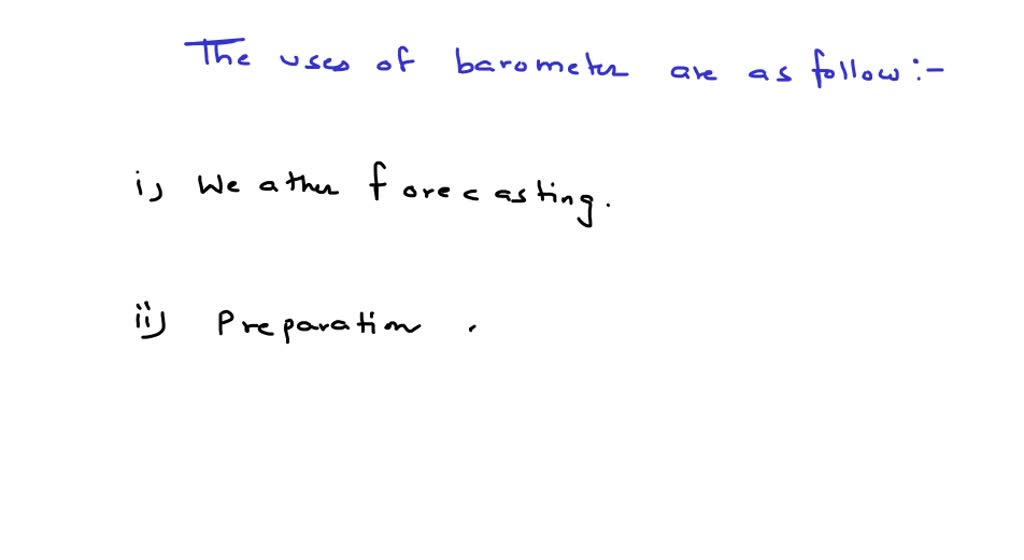 The uses of barometer are as follow :-
i) Weather forecasting.
ii) Preparation